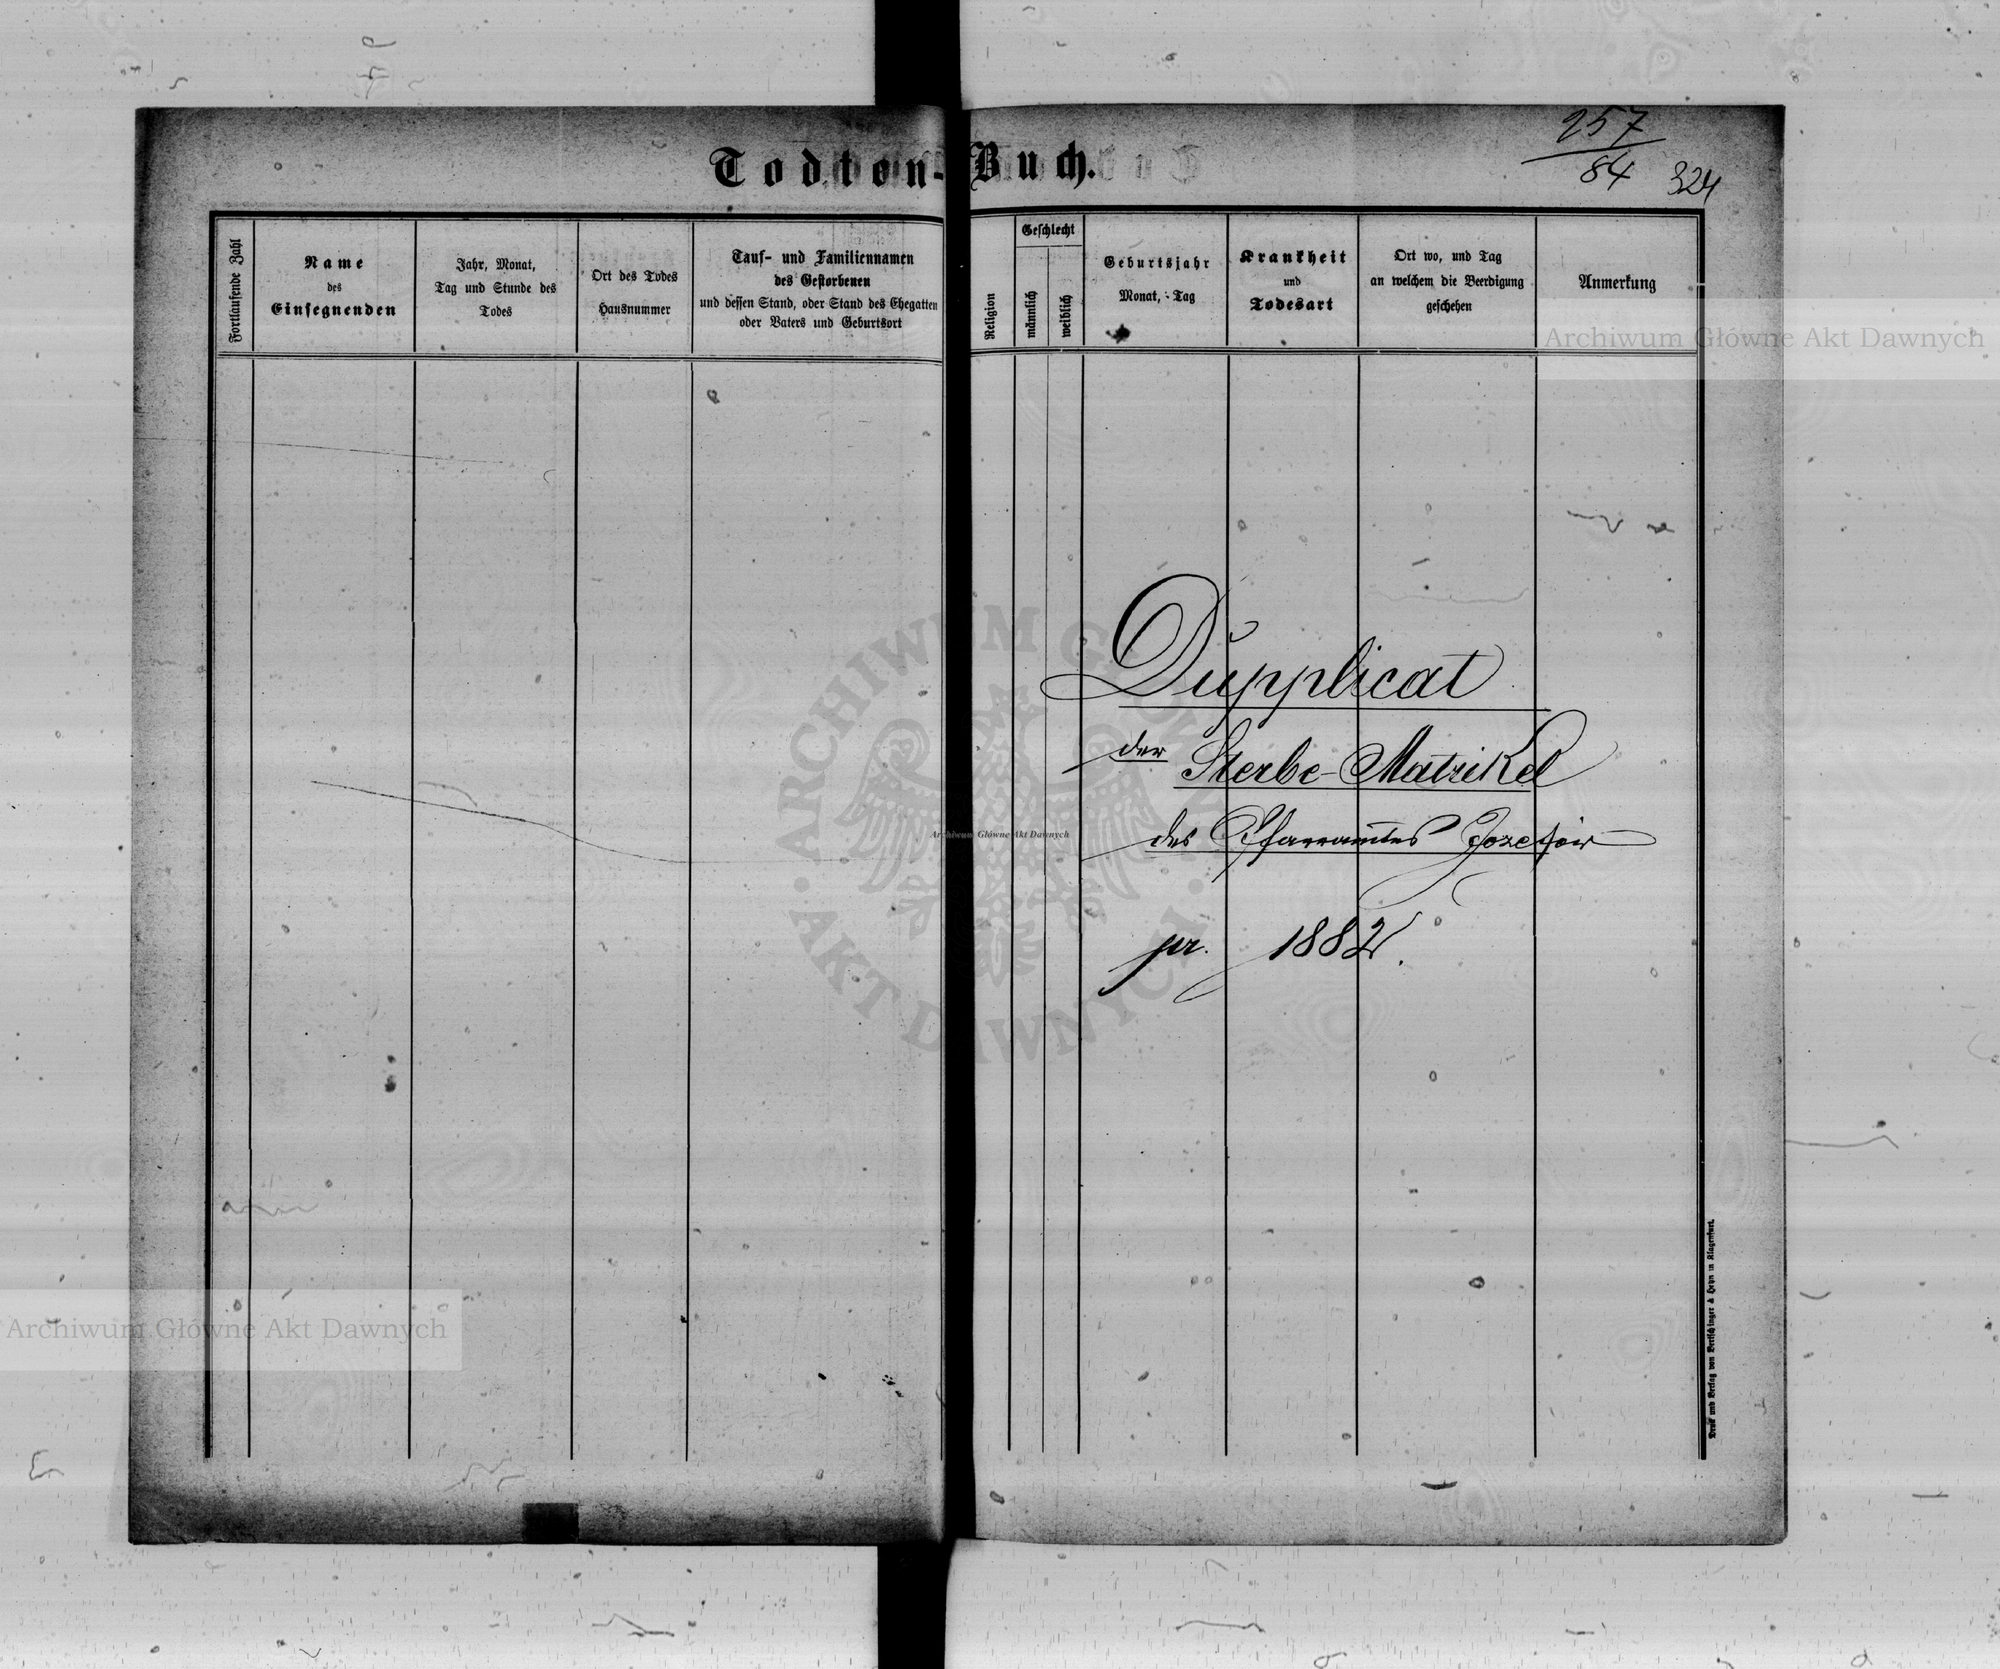 257
84
324
Todten-Buch.
Fortlaufende Zahl
Name
des
Einsegnenden
Jahr, Monat,
Tag und Stunde des
Todes
Ort des Todes
Hausnummer
Tauf- und Familiennamen
des Gestorbenen
und dessen Stand, oder Stand des Ehegatten
oder Vaters und Geburtsort
Religion
Geschlecht
männlich
weiblich
Geburtsjahr
Monat, Tag
Krankheit
und
Todesart
Ort wo, und Tag
an welchem die Beerdigung
geschehen
Anmerkung
Archiwum Główne Akt Dawnych
Dupplicat
der Sterbe-Matrikel
des Pfarramtes Jozefów
pr. 1882.
ARCHIWUM GŁÓWNE
AKT DAWNYCH
Archiwum Główne Akt Dawnych
Archiwum Główne Akt Dawnych
Druck und Verlag von Bertschinger & Heyn in Klagenfurt.